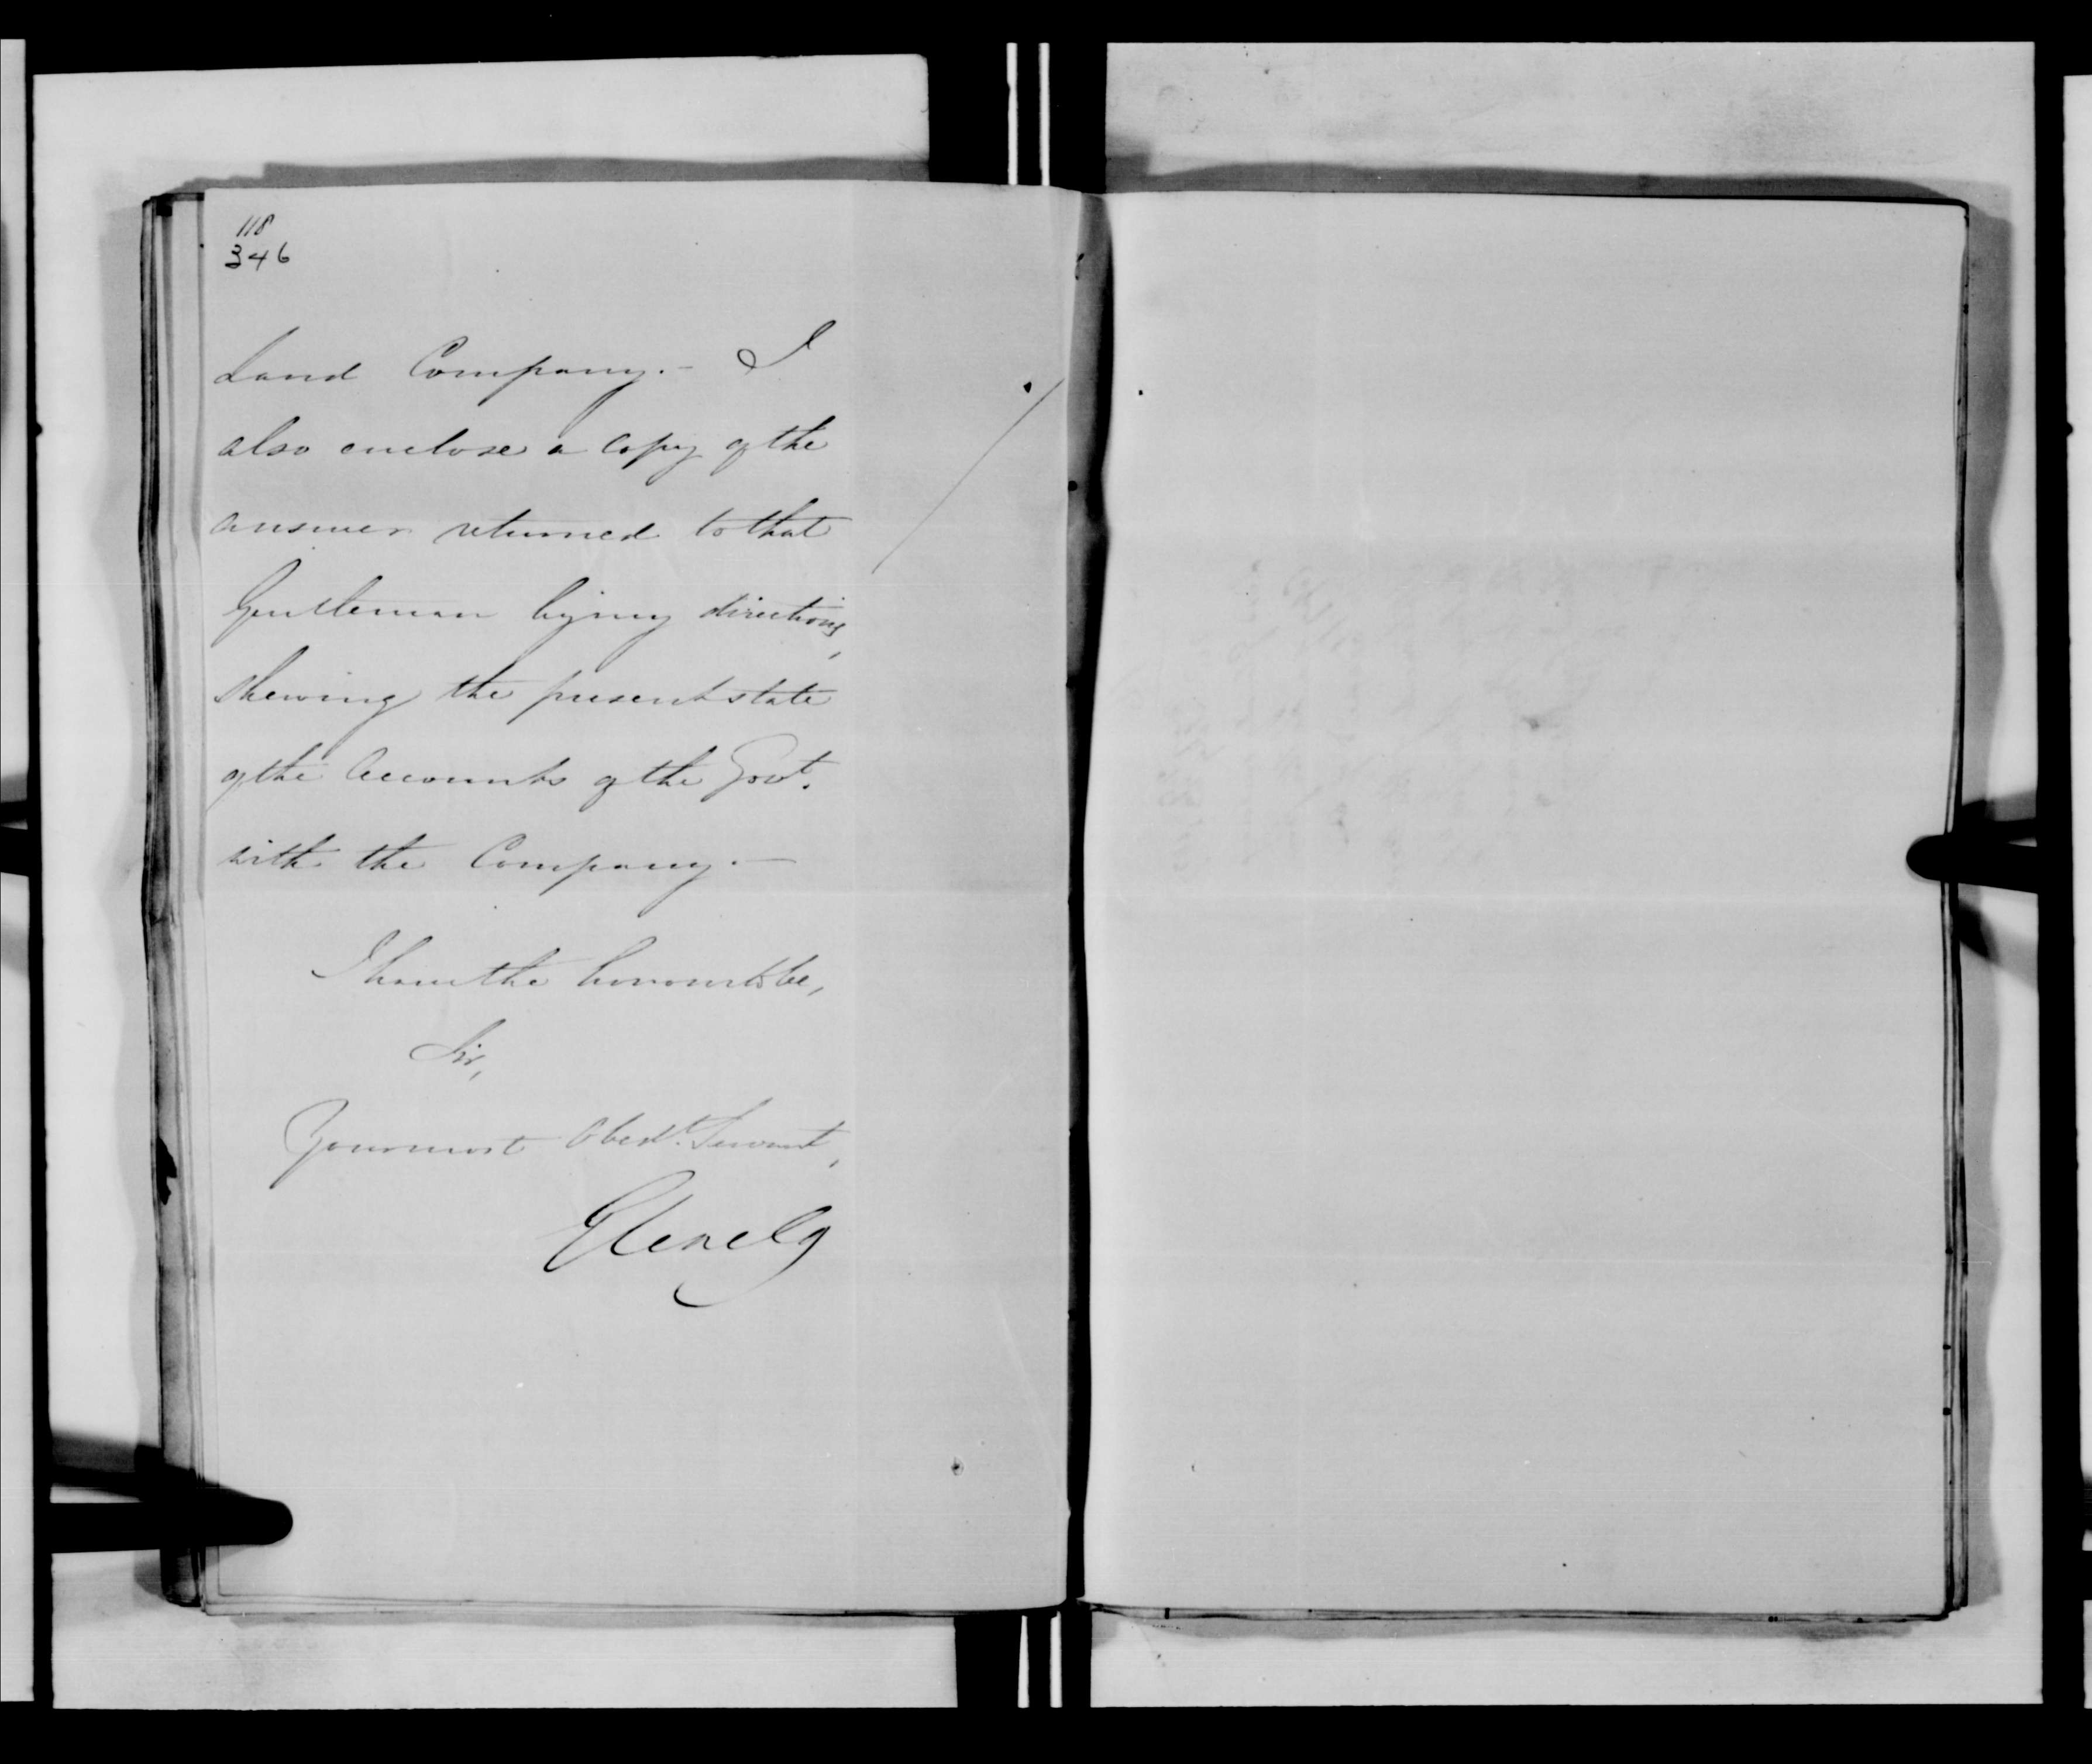 118
346
Land Company. - I
also enclose a Copy of the
answer returned to that
Gentleman by my directions,
shewing the present state
of the Accounts of the Govt.
with the Company. -
I have the honour to be,
Sir,
Your most Obedt. Servant,
Glenelg